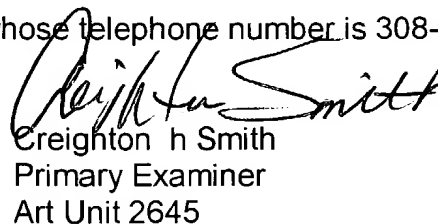 whose telephone number is 308-
Creighton Smith
Creighton h Smith
Primary Examiner
Art Unit 2645